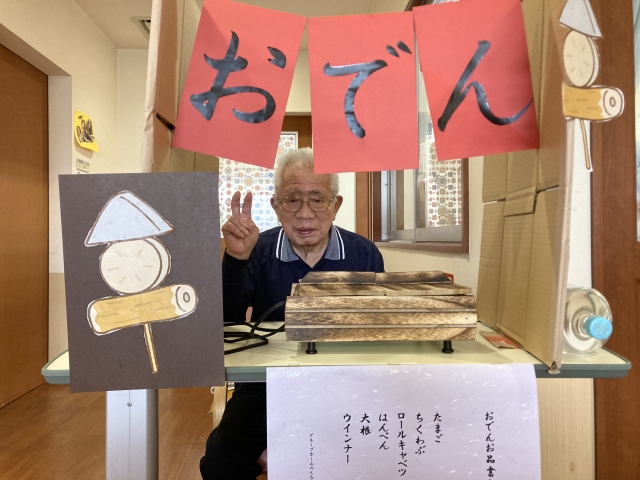 おでん
おでんお品書
たまご
ちくわぶ
ロールキャベツ
はんぺん
大根
ウインナー